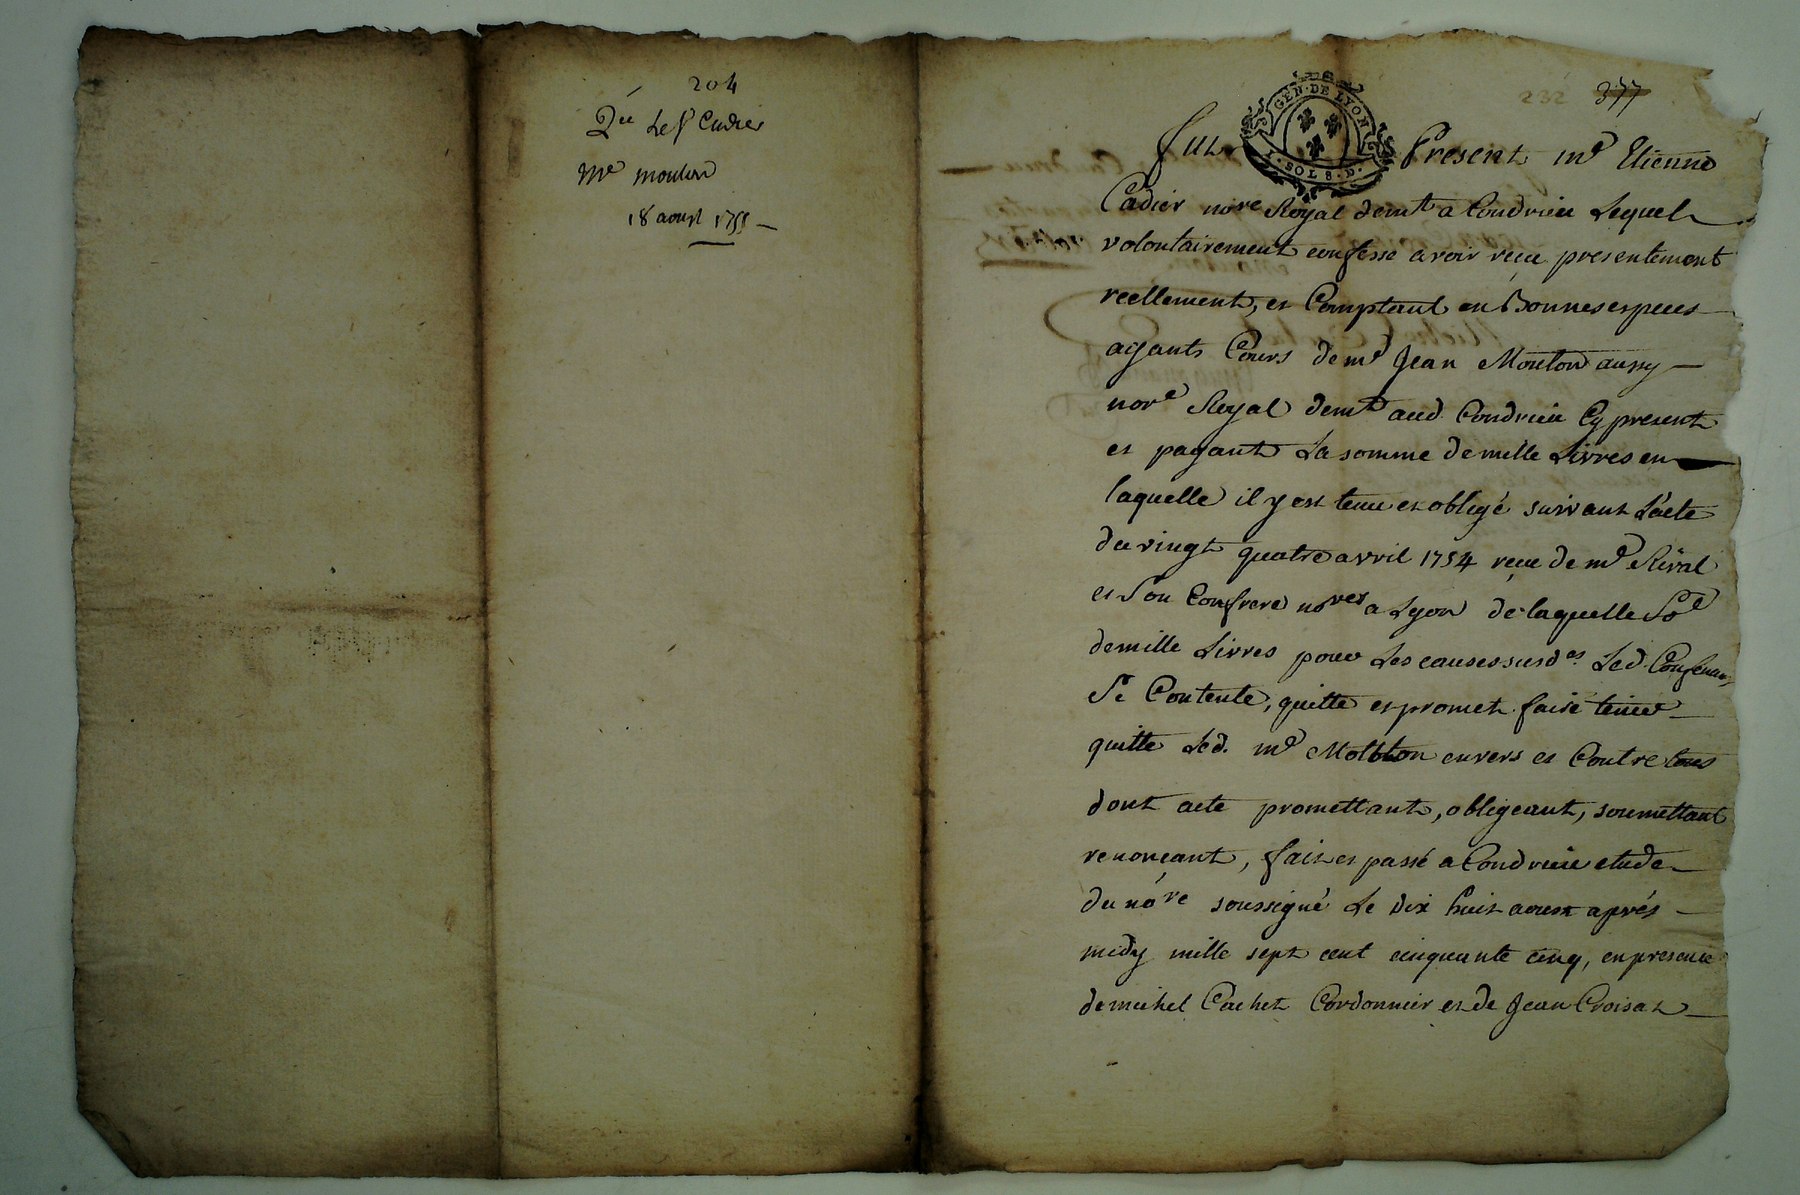 204
Q.ce Le Sr Cadier
Me mouton
18 aoust 1755
232 377
GÉN. DE LYON
1. SOL 8. D.
Fut Present me Etienne
Cadier nore Royal demt a Condrieu Lequel
volontairement confesse avoir reçu presentement
reellement, et Comptant en Bonnes especes
ayants Cours de me Jean Mouton aussy
nore Royal demt aud. Condrieu Cy present
et payant La somme de mille Livres en
laquelle il y est tenu et obligé suivant L'acte
du vingt quatre avril 1754 reçu de me Rival
et Son Confrere nores a Lyon de laquelle So.e
de mille Livres pour Les causes susd.es Led. Confessant
Se Contente, quitte et promet faire tenir
quitte Led. me Moutton envers et Contre tous
dont acte promettant, obligeant, soumettant
renonçant, fait et passé a Condrieu etude
du nore soussigné Le dix huit aoust aprés
midy mille sept cent cinquante cinq, en presence
de michel Cachet Cordonnier et de Jean Croisat